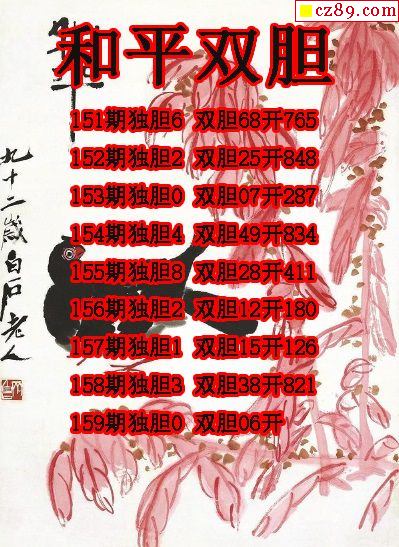 cz89.com
和平双胆
151期独胆6 双胆68开765
152期独胆2 双胆25开848
153期独胆0 双胆07开287
154期独胆4 双胆49开834
155期独胆8 双胆28开411
156期独胆2 双胆12开180
157期独胆1 双胆15开126
158期独胆3 双胆38开821
159期独胆0 双胆06开
九十二岁白石老人